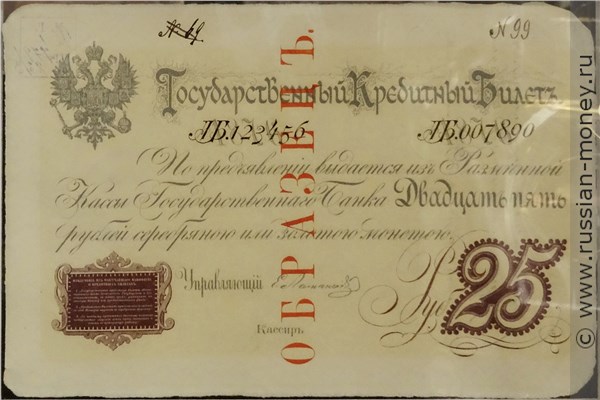 № 69
№ 99
Государственный Кредитный Билетъ
ЛБ.123456 ЛБ.007890
По предъявленіи выдается изъ Размѣнной
Кассы Государственнаго Банка Двадцать пять
рублей серебряною или золотою монетою.
Управляющій
Руб
25
Кассиръ
ОБРАЗЕЦЪ.
© www.russian-money.ru